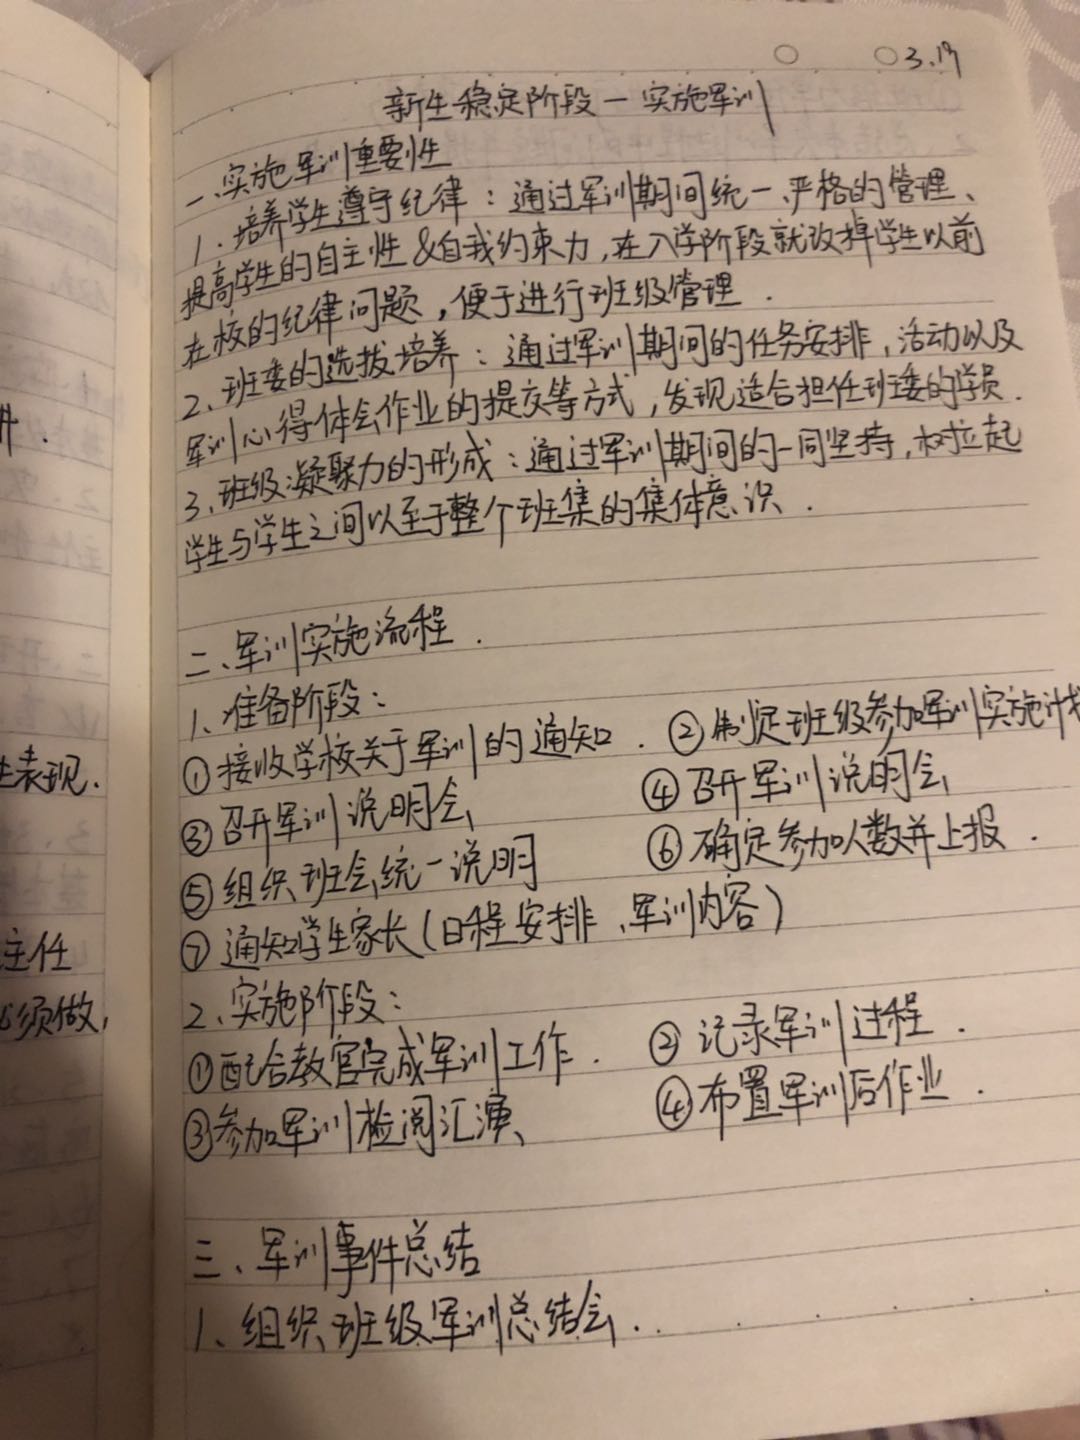 3.17
新生稳定阶段－实施军训
一.实施军训重要性
1.培养学生遵守纪律：通过军训期间统一、严格的管理、
提高学生的自主性&自我约束力,在入学阶段就改掉学生以前
在校的纪律问题，便于进行班级管理.
2、班委的选拔培养：通过军训期间的任务安排,活动以及
军训心得体会作业的提交等方式,发现适合担任班委的学员.
3、班级凝聚力的形成：通过军训期间的一同坚持,树立起
学生与学生之间以至于整个班集的集体意识.
二、军训实施流程.
1、准备阶段：
①接收学校关于军训的通知. ②制定班级参加军训实施计
③召开军训说明会 ④召开军训说明会
⑤组织班会统一说明 ⑥确定参加人数并上报.
⑦通知学生家长(日程安排、军训内容)
2、实施阶段：
①配合教官完成军训工作. ②记录军训过程.
③参加军训检阅汇演、 ④布置军训后作业.
三、军训事件总结
1、组织班级军训总结会.
生表现.
主任
必须做,